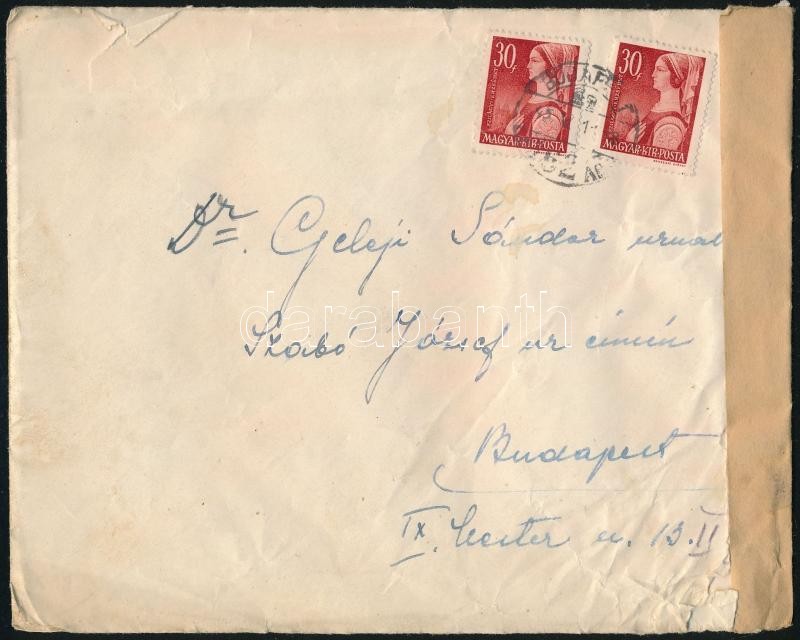 30f
30f
MAGYAR·KIR·POSTA
MAGYAR·KIR·POSTA
Dr. Geleji Sándor urnak
darabanth
Szabó József ur címén
Budapest
IX. Mester u. 13. II